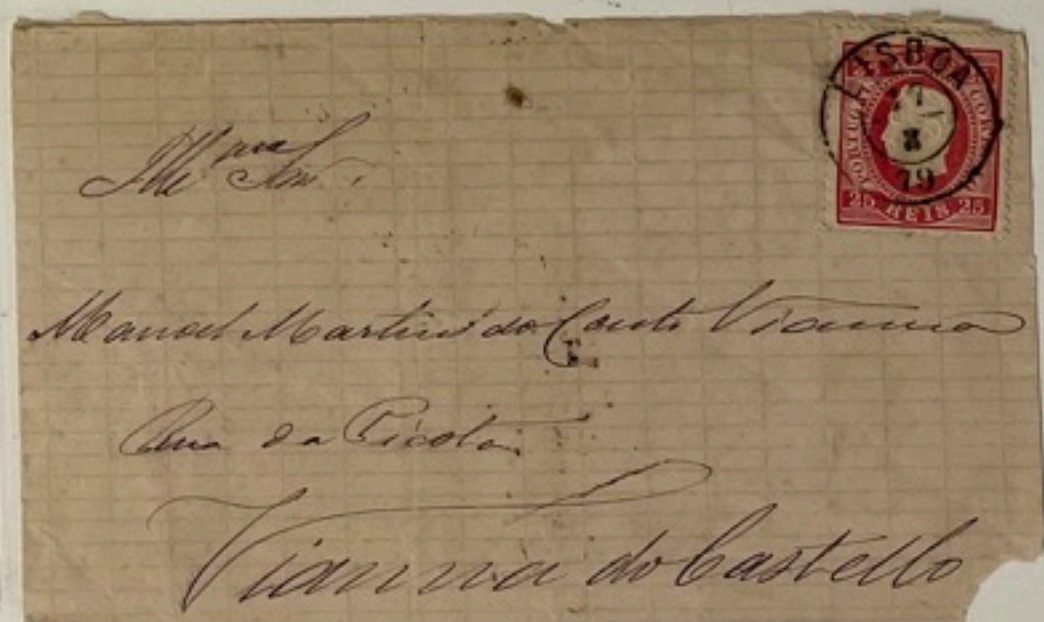 LISBOA
17
8
79
PORTUGAL
25 REIS 25
Illmo Snr.
Manoel Martins do Couto Vianna
Rua da Picota
Vianna do Castello